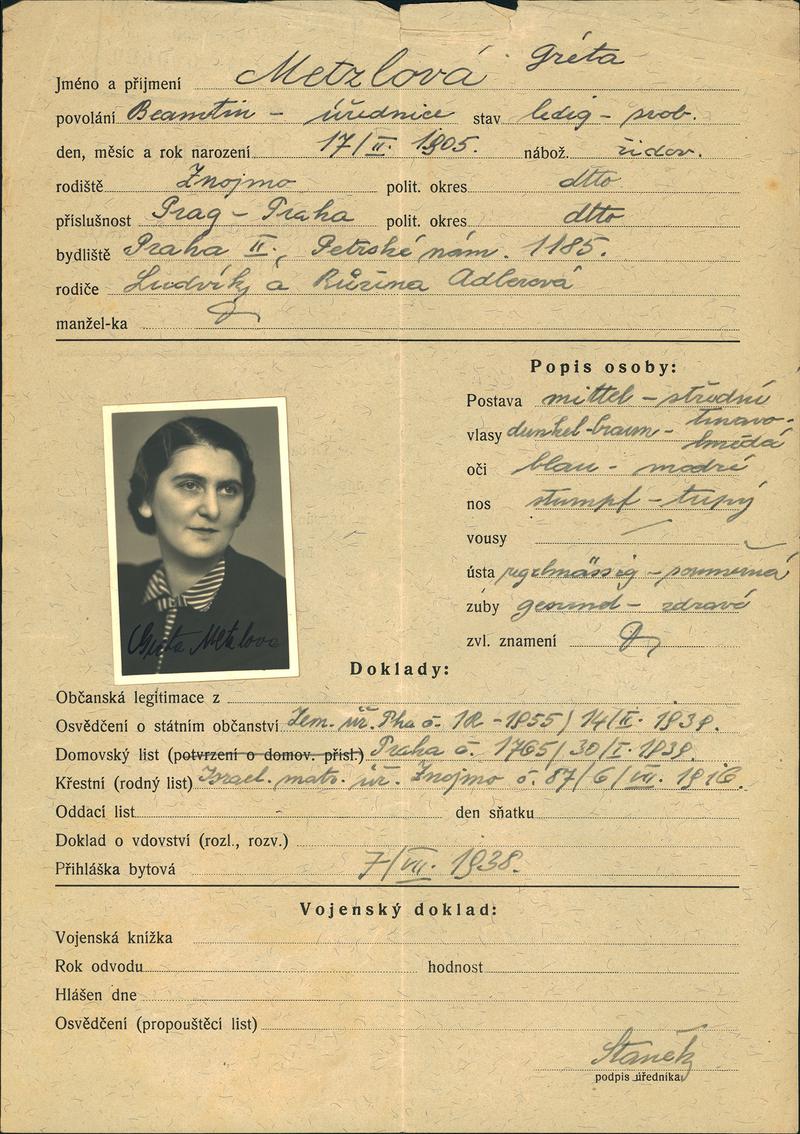 Jméno a příjmení Metzlová Gréta
povolání Beamtin – úřednice stav ledig – svob.
den, měsíc a rok narození 17/II. 1905. nábož. židov.
rodiště Znojmo polit. okres dtto
příslušnost Prag – Praha polit. okres dtto
bydliště Praha II., Petrské nám. 1185.
rodiče Ludvík a Růžena Adlerová
manžel-ka
Popis osoby:
Postava mittel – střední
vlasy dunkel-braun – tmavo-hnědá
oči blau – modré
nos stumpf – tupý
vousy —
ústa regelmässig – souměrná
zuby gesund – zdravé
zvl. znamení
Greta Metzlova
Doklady:
Občanská legitimace z
Osvědčení o státním občanství Zem. úř. Pha č. 1R - 1855/14/II. 1939.
Domovský list (potvrzení o domov. přísl.) Praha č. 1765/30/I. 1939.
Křestní (rodný list) Israel. matr. úř. Znojmo č. 87/6/VII. 1916.
Oddací list - den sňatku
Doklad o vdovství (rozl., rozv.)
Přihláška bytová 7/VII. 1938.
Vojenský doklad:
Vojenská knížka
Rok odvodu hodnost
Hlášen dne
Osvědčení (propouštěcí list)
Staněk
podpis úředníka